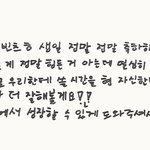 빈츠 생일 정말 정말 축하해
게 정말 힘든 거 아는데 열심히
우리한테 쓸 시간을 현 자신한
더 잘해볼게요!!
에서 성장할 수 있게 도와주셔서